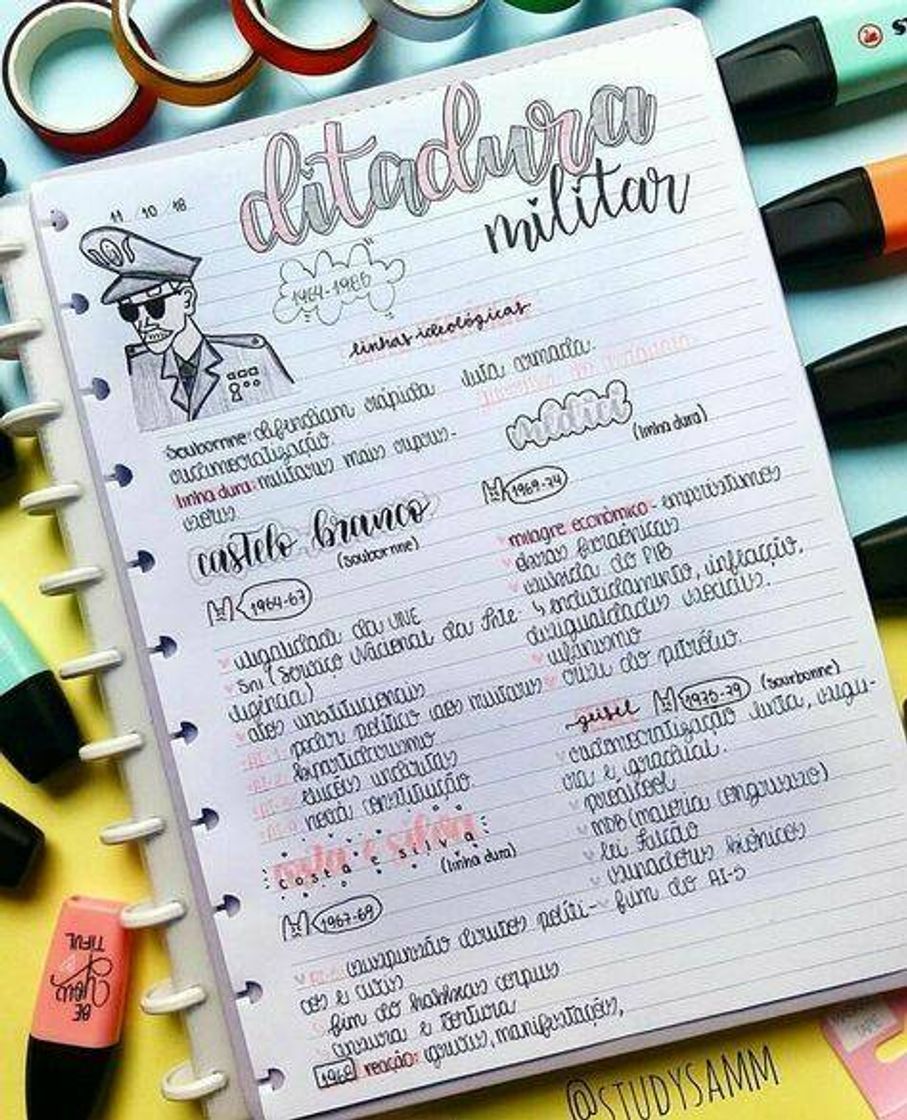 11 / 10 / 18
ditadura
militar
1964-1985
linhas ideológicas
Sourbonne: defendiam rápida
redemocratização
linha dura: militares mais
castelo branco
(sourbonne)
1964-67
ilegalidade da UNE
SNI (Serviço Nacional da Inte-
ligência)
atos institucionais
AI-1: poder político aos militares
AI-2: bipartidarismo
AI-3: eleições indiretas
AI-4: nova constituição
costa e silva
costa e silva
(linha dura)
1967-69
AI-5: suspensão direitos políti-
cos e civis
fim do habeas corpus
censura e tortura
1968 reação: greves, manifestações,
luta armada.
guerrilha do Araguaia
médici
(linha dura)
1969-74
milagre econômico - empréstimos
obras faraônicas
subida do PIB
↳ endividamento, inflação,
desigualdades sociais.
ufanismo
crise do petróleo
geisel 1975-79 (sourbonne)
redemocratização lenta, segu-
ra e gradual.
proálcool
MDB (maioria congresso)
lei falcão
senadores biônicos
fim do AI-5
BE
YOU
TIFUL
@STUDYSAMM